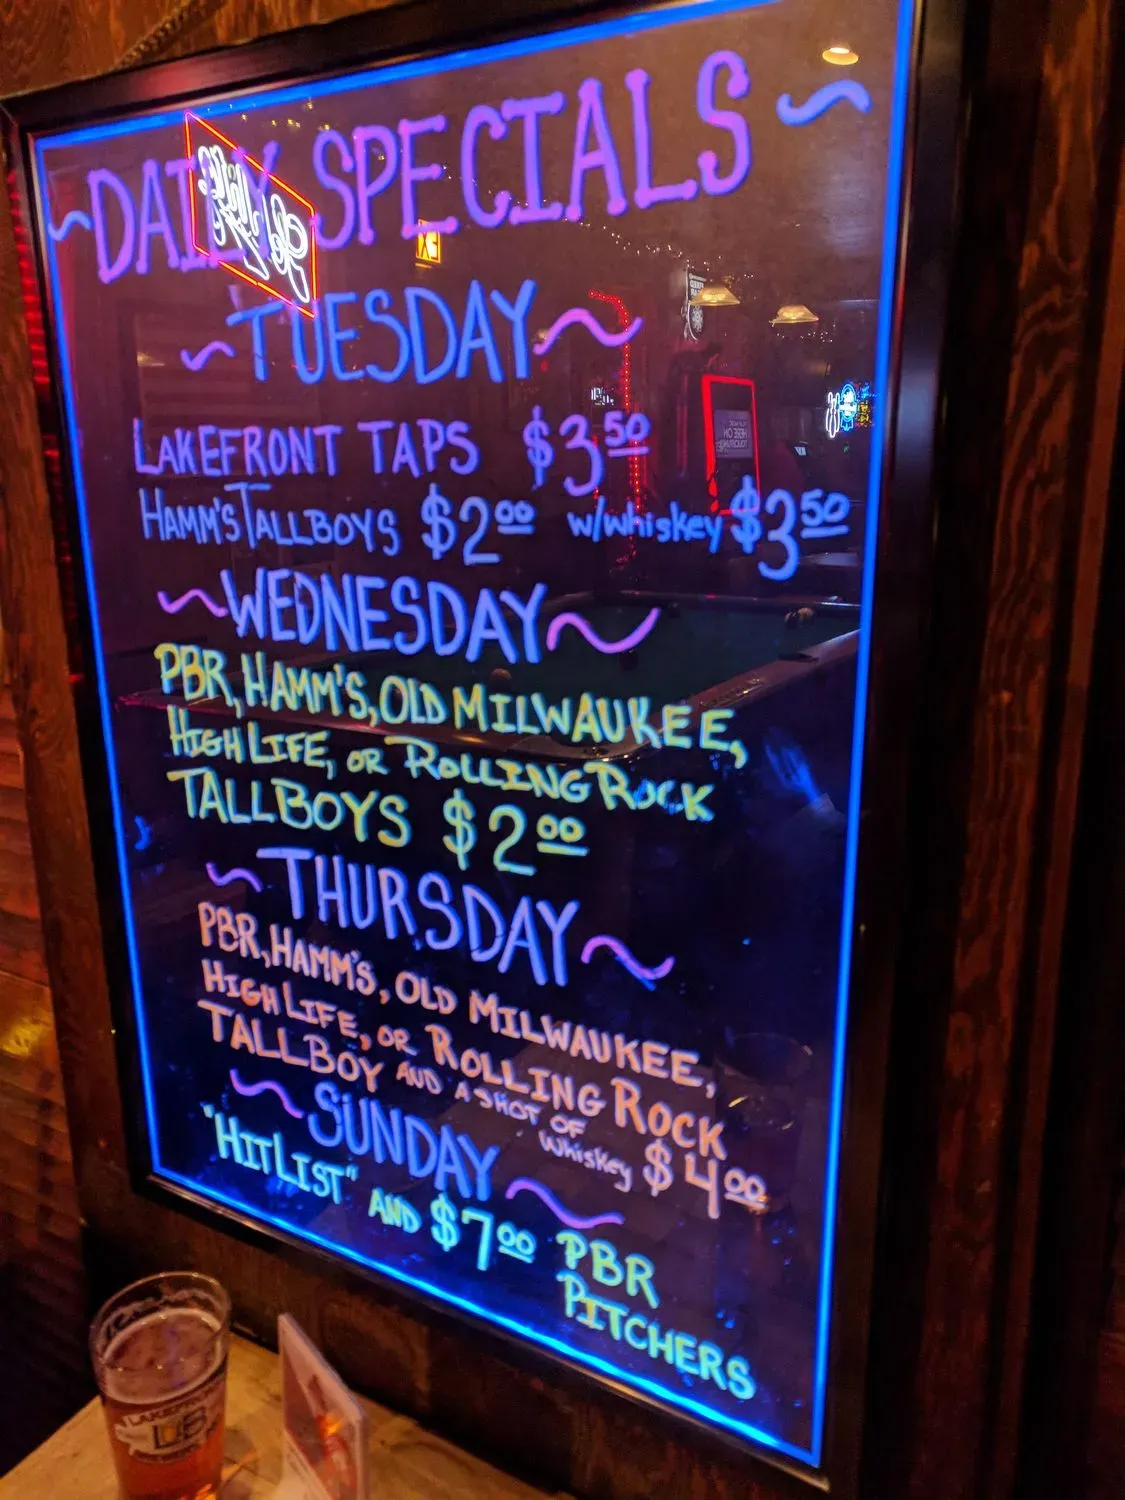 ~DAILY SPECIALS~
~TUESDAY~
LAKEFRONT TAPS $3.50
HAMM'S TALLBOYS $2.00 w/whiskey $3.50
~WEDNESDAY~
PBR, HAMM'S, OLD MILWAUKEE,
HIGH LIFE, OR ROLLING ROCK
TALLBOYS $2.00
~THURSDAY~
PBR, HAMM'S, OLD MILWAUKEE,
HIGH LIFE, OR ROLLING ROCK
TALLBOY AND A SHOT OF
Whiskey $4.00
~SUNDAY~
"HITLIST" AND $7.00 PBR
PITCHERS
LAKEFRONT
LB